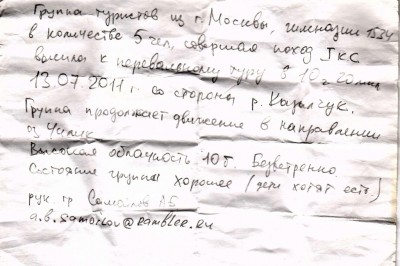 Группа туристов из г. Москвы, гимназии 1534
в количестве 5 чел, совершая поход I кс
вышла к перевальному туру в 10 ч 20 мин
13.07.2011 г. со стороны р. Казылчук.
Группа продолжает движение в направлении
оз Чилик
Высокая облачность 10 б. Безветренно
Состояние группы хорошее (дети хотят есть)
рук гр Самойлов АБ
a.b.samoilov@rambler.ru